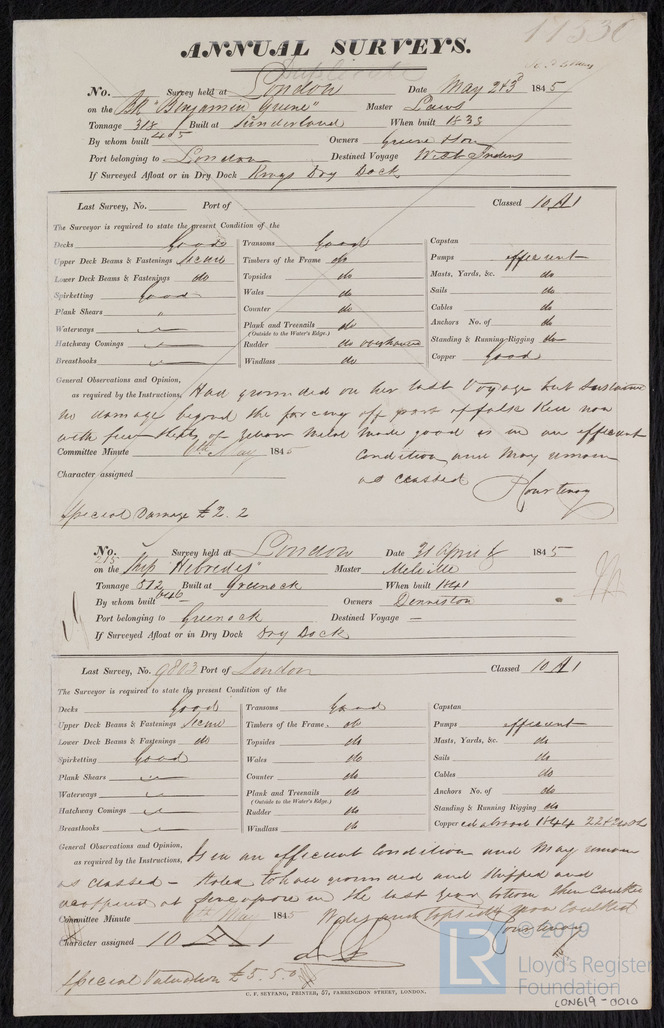 17536
ANNUAL SURVEYS.
Duplicate
No. Survey held at London Date May 2 & 3d 1845
on the Bk "Benjamin Greene" Master Laws
Tonnage 318 Built at Sunderland When built 1833
405
By whom built Owners Greene & Son
Port belonging to London Destined Voyage West Indies
If Surveyed Afloat or in Dry Dock Kings Dry Dock
Last Survey, No. Port of Classed 10 A 1
The Surveyor is required to state the present Condition of the
Decks Good Transoms Good Capstan
Upper Deck Beams & Fastenings Secure Timbers of the Frame do Pumps efficient
Lower Deck Beams & Fastenings do Topsides do Masts, Yards, &c. do
Spirketting Good Wales do Sails do
Plank Shears " Counter do Cables do
Waterways Plank and Treenails do Anchors No. of do
(Outside to the Water's Edge.)
Hatchway Comings Rudder do overhauled Standing & Running Rigging do
Breasthooks Windlass do Copper Good
General Observations and Opinion, Had grounded on her last Voyage but sustained
as required by the Instructions, no damage beyond the forcing off part of falk Keel now
with few Sheets of Yellow Metal made good is in an efficient
Committee Minute 6th May 1845 condition and may remain
Character assigned as classed Courtenay
Special Damage £2.2
No. 215 Survey held at London Date 21 April 1845
on the Ship "Hebrides" Master Melville
Tonnage 512 Built at Greenock When built 1841
646
By whom built Owners Denniston
Port belonging to Greenock Destined Voyage —
If Surveyed Afloat or in Dry Dock Dry Dock
Last Survey, No. 9803 Port of London Classed 10 A 1
The Surveyor is required to state the present Condition of the
Decks Good Transoms Good Capstan
Upper Deck Beams & Fastenings Secure Timbers of the Frame do Pumps efficient
Lower Deck Beams & Fastenings do Topsides do Masts, Yards, &c. do
Spirketting Good Wales do Sails do
Plank Shears Counter do Cables do
Waterways Plank and Treenails do Anchors No. of do
(Outside to the Water's Edge.)
Hatchway Comings Rudder do Standing & Running Rigging do
Breasthooks Windlass do Copper ed abroad 1844
General Observations and Opinion, Is in an efficient Condition and May remain
as required by the Instructions, as classed – Stated to have grounded and stripped and
recoppered at Singapore in the last year bottom then Caulked
Committee Minute 6th May 1845 Wales and topsides upon Caulked
Character assigned 10 A 1 Courtenay
Special Valuation £5.5.0
C. F. SEYFANG, PRINTER, 57, FARRINGDON STREET, LONDON.
© 2019
LR
Lloyd's Register
Foundation
LON619-0010